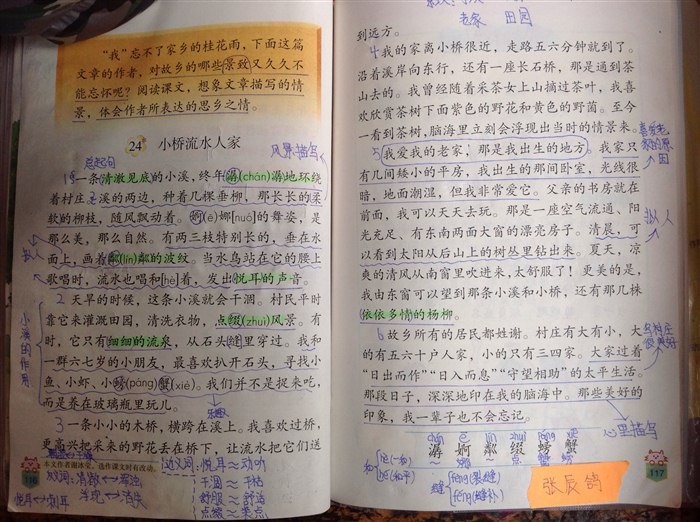 “我”忘不了家乡的桂花雨，下面这篇
文章的作者，对故乡的哪些景致又久久不
能忘怀呢？阅读课文，想象文章描写的情
景，体会作者所表达的思乡之情。
24 小桥流水人家
风景描写
总起句
1 一条清澈见底的小溪，终年潺(chán)潺地环绕
着村庄。溪的两边，种着几棵垂柳，那长长的柔
软的柳枝，随风飘动着。婀(ē)娜[nuó]的舞姿，是
那么美，那么自然。有两三枝特别长的，垂在水
面上，画着粼(lín)粼的波纹。当水鸟站在它的腰上
歌唱时，流水也唱和[hè]着，发出悦耳的声音。
拟人
2 天旱的时候，这条小溪就会干涸。村民平时
靠它来灌溉田园，清洗衣物，点缀(zhuì)风景。有
时，它只有细细的流泉，从石头缝里穿过。我和
一群六七岁的小朋友，最喜欢扒开石头，寻找小
鱼、小虾、小螃(páng)蟹(xiè)。我们并不是捉来吃，
而是养在玻璃瓶里玩儿。
小溪的作用
乐趣
3 一条小小的木桥，横跨在溪上。我喜欢过桥，
更高兴把采来的野花丢在桥下，让流水把它们送
本文作者谢冰莹，选作课文时有改动。
116
反义词：清澈↔浑浊
悦耳↔刺耳 浮现↔消失
近义词：悦耳≈动听
干涸≈干枯
舒服≈舒适
点缀≈装点
老家 田园
到远方。
4 我的家离小桥很近，走路五六分钟就到了。
沿着溪岸向东行，还有一座长石桥，那是通到茶
山去的。我曾经随着采茶女上山摘过茶叶，我喜
欢欣赏茶树下面紫色的野花和黄色的野菌。至今
一看到茶树，脑海里立刻会浮现出当时的情景来。
5 我爱我的老家，那是我出生的地方。我家只
有几间矮小的平房，我出生的那间卧室，光线很
暗，地面潮湿，但我非常爱它。父亲的书房就在
前面，我可以天天去玩。那是一座空气流通、阳
光充足、有东南两面大窗的漂亮房子。清晨，可
以看到太阳从后山上的树丛里钻出来。夏天，凉
爽的清风从南窗里吹进来，太舒服了！更美的是，
我由东窗可以望到那条小溪和小桥，还有那几株
依依多情的杨柳。
喜爱老家的原因
拟人
6 故乡所有的居民都姓谢。村庄有大有小，大
的有五六十户人家，小的只有三四家。大家过着
“日出而作”“日入而息”“守望相助”的太平生活。
那段日子，深深地印在我的脑海中。那些美好的
印象，我一辈子也不会忘记。
心里描写
chán ē lín zhuì páng xiè
潺 婀 粼 缀 螃 蟹
和
hé(和平)
缝
féng(缝补)
张辰鸽
117